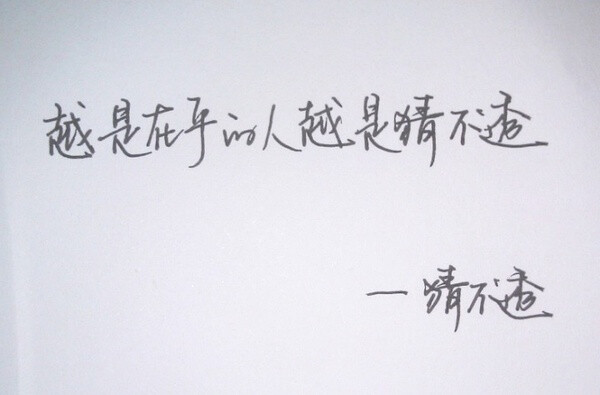 越是在乎的人越是猜不透
—猜不透